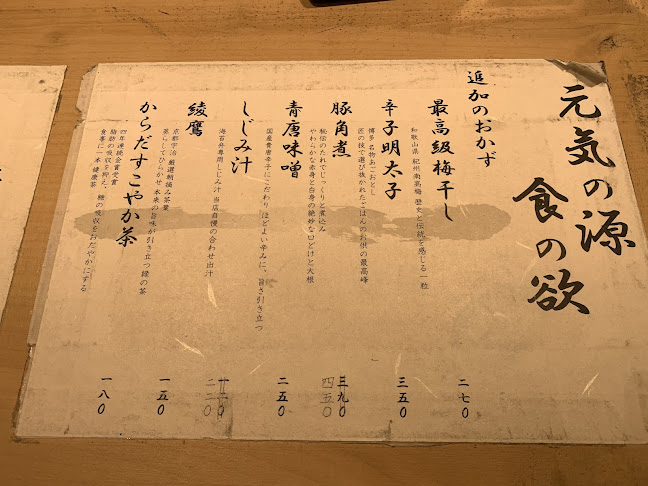 元気の源
食の欲
追加のおかず
最高級梅干し
和歌山県 紀州南高梅 歴史と伝統を感じる一粒
二七〇
辛子明太子
博多 名物あごおとし
匠の技で選び抜かれたごはんのお供の最高峰
三五〇
豚角煮
秘伝のたれでじっくりと煮込み
やわらかな赤身と白身の絶妙な口どけと大根
三九〇
四五〇
青唐味噌
国産青唐辛子にこだわり ほどよい辛みに、旨さ引き立つ
二五〇
しじみ汁
海石丼専用しじみ汁 当店自慢の合わせ出汁
二二〇
綾鷹
京都宇治 厳選朝摘み茶葉
蒸らしてひらかせ 本来の旨味が引き立つ緑の茶
一五〇
からだすこやか茶
四年連続金賞受賞
脂肪の吸収を抑え、糖の吸収をおだやかにする
食事に一本 健康茶
一八〇